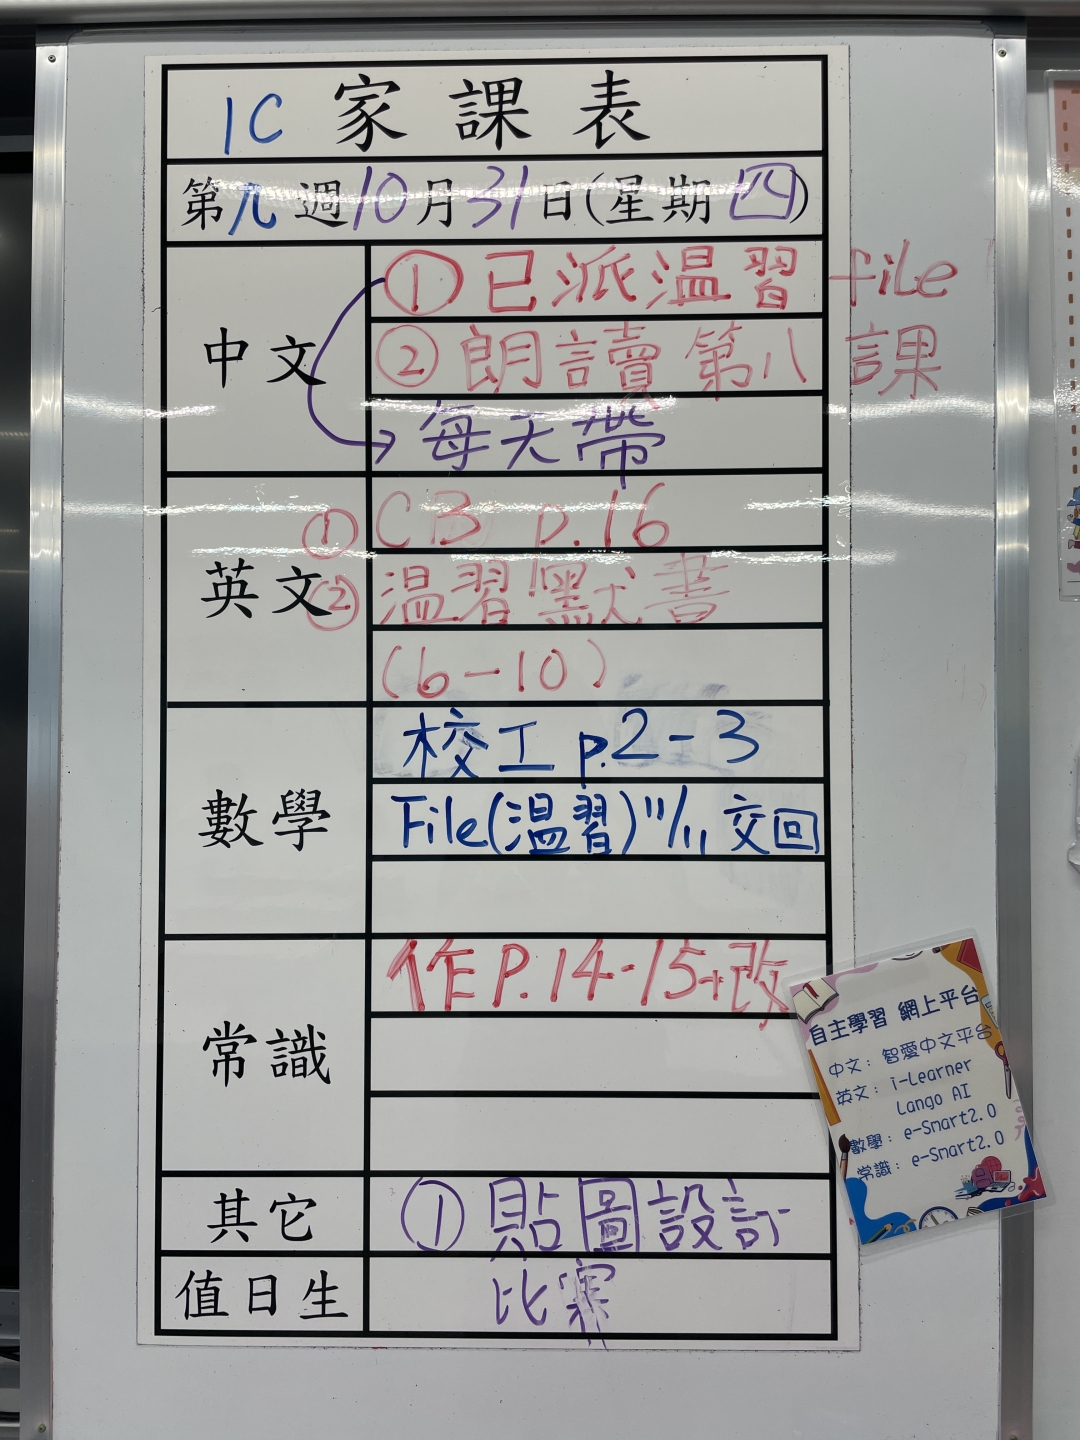 1C 家課表
第九週10月31日(星期四)
中文
① 已派温習 file
② 朗讀 第八課
每天帶
英文
① CB p.16
② 温習!默書
(6-10)
數學
校工 p.2-3
File(温習)11/11 交回
常識
作 P.14-15+改
其它
① 貼圖設計
值日生
比賽
自主學習 網上平台
中文：智愛中文平台
英文：i-Learner
Lango AI
數學：e-Smart2.0
常識：e-Smart2.0